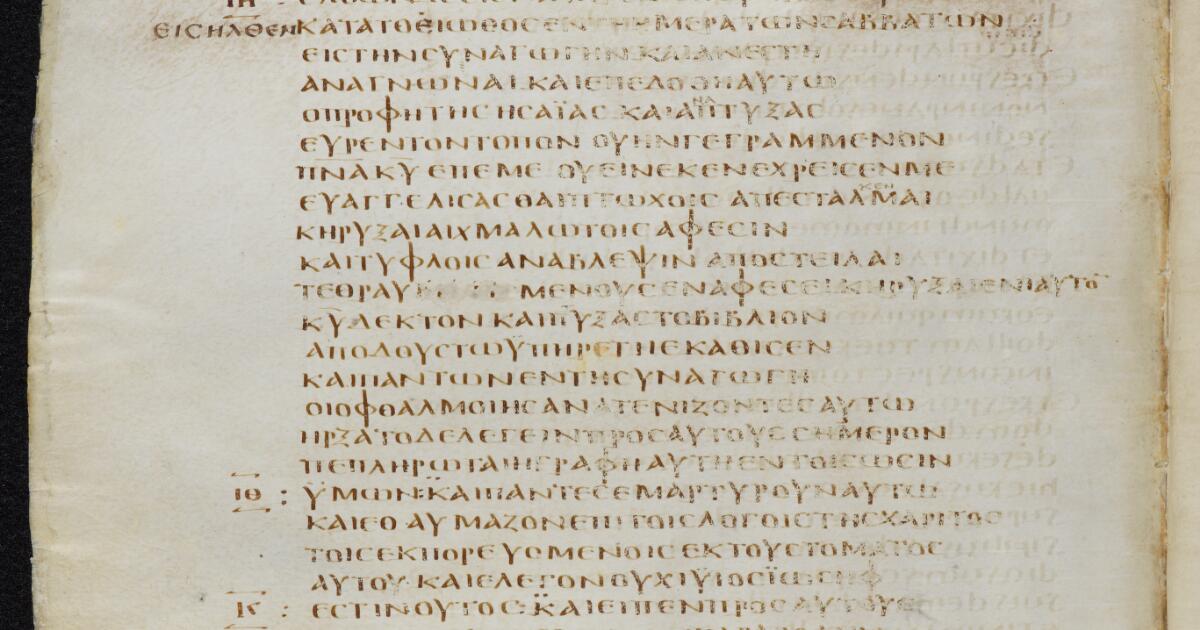 ΕΙCΗΛΘΕΝ ΚΑΤΑΤΟΕΙΩΘΟCΕΝ ΤΗ ΗΜΕΡΑΤΩΝCΑΒΒΑΤΩΝ
ΕΙCΤΗΝCΥΝΑΓΩΓΗΝ ΚΑΙΑΝΕCΤΗ
ΑΝΑΓΝΩΝΑΙ ΚΑΙΕΠΕΔΟΘΗΑΥΤΩ
ΟΠΡΟΦΗΤΗC ΗCΑΪΑC ΚΑΙΑΠΤΥΞΑC
ΕΥΡΕΝΤΟΝΤΟΠΟΝ ΟΥΗΝΓΕΓΡΑΜΜΕΝΟΝ
ΠΝΑ ΚΥ ΕΠΕΜΕ ΟΥΕΙΝΕΚΕΝΕΧΡΕΙCΕΝΜΕ
ΕΥΑΓΓΕΛΙCΑCΘΑΙΠΤΩΧΟΙC ΑΠΕCΤΑΛΜΑΙ
ΚΗΡΥΞΑΙΑΙΧΜΑΛΩΤΟΙCΑΦΕCΙΝ
ΚΑΙΤΥΦΛΟΙC ΑΝΑΒΛΕΨΙΝ ΑΠΟCΤΕΙΛΑΙ
ΤΕΘΡΑΥ ΜΕΝΟΥCΕΝΑΦΕCΕΙ ΚΗΡΥΞΑΙΕΝΙΑΥΤΟ
ΚΥ ΔΕΚΤΟΝ ΚΑΙΠΤΥΞΑCΤΟΒΙΒΛΙΟΝ
ΑΠΟΔΟΥCΤΩΫΠΗΡΕΤΗ ΕΚΑΘΙCΕΝ
ΚΑΙΠΑΝΤΩΝΕΝΤΗCΥΝΑΓΩΓΗ
ΟΙΟΦΘΑΛΜΟΙΗCΑΝ ΑΤΕΝΙΖΟΝΤΕCΑΥΤΩ
ΗΡΞΑΤΟΔΕΛΕΓΕΙΝΠΡΟCΑΥΤΟΥC CΗΜΕΡΟΝ
ΠΕΠΛΗΡΩΤΑΙΗΓΡΑΦΗΑΥΤΗΕΝΤΟΙCΩCΙΝ
ΙΘ : ΫΜΩΝ:ΚΑΙΠΑΝΤΕCΕΜΑΡΤΥΡΟΥΝΑΥΤΩ
ΚΑΙΕΘΑΥΜΑΖΟΝΕΠΙΤΟΙCΛΟΓΟΙCΤΗCΧΑΡΙΤΟC
ΤΟΙCΕΚΠΟΡΕΥΟΜΕΝΟΙC ΕΚΤΟΥCΤΟΜΑΤΟC
ΑΥΤΟΥ ΚΑΙΕΛΕΓΟΝ ΟΥΧΙΫΙΟCΪΩCΗΦ
Κ : ΕCΤΙΝΟΥΤΟC:ΚΑΙΕΙΠΕΝΠΡΟCΑΥΤΟΥC